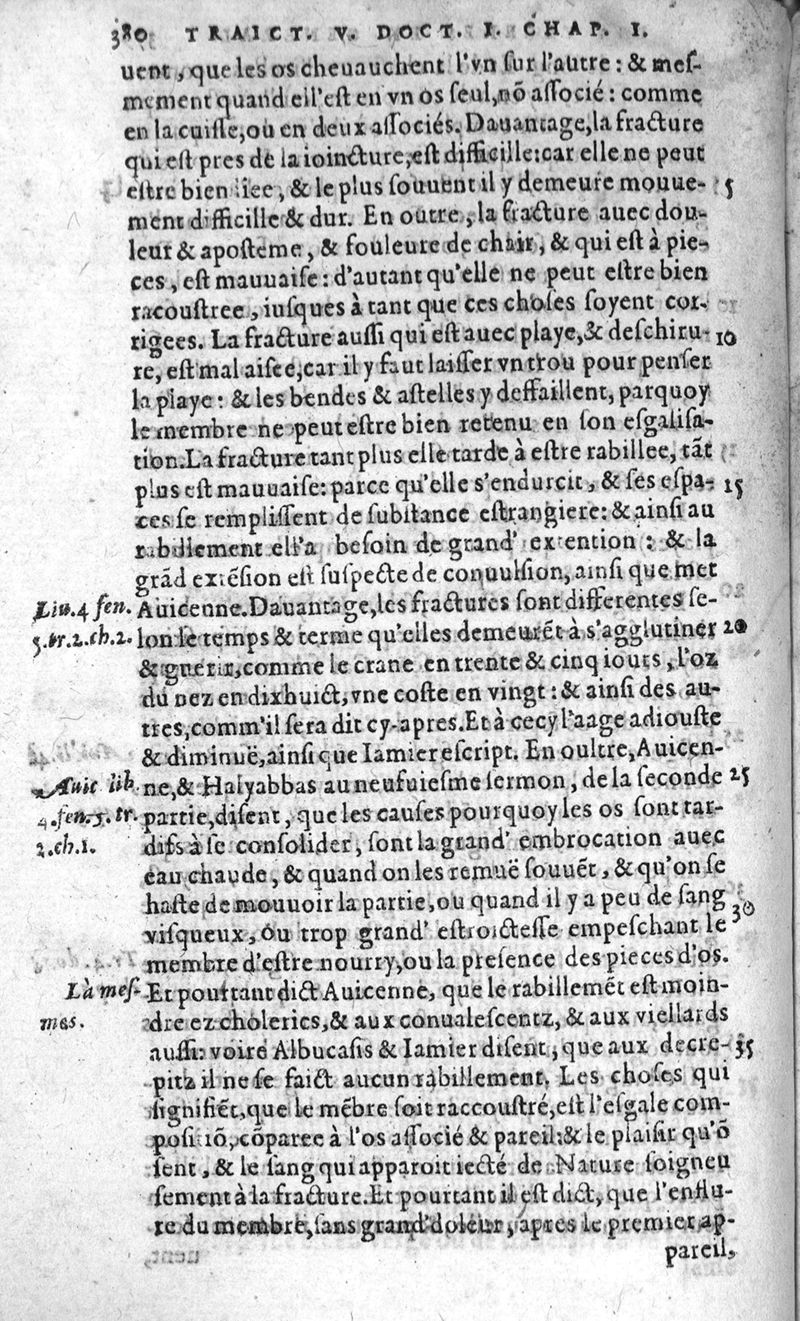 380 TRAICT. V. DOCT. I. CHAP. I.
uent, que les os cheuauchent l'vn ſur l'autre: & meſ-
mement quand ell'eſt en vn os ſeul, nõ aſſocié: comme
en la cuiſſe, ou en deux aſſociés. Dauantage, la fracture
qui eſt pres de la ioincture, eſt difficille: car elle ne peut
eſtre bien liee, & le plus ſouuent il y demeure mouue- 5
ment difficille & dur. En outre, la fracture auec dou-
leur & apoſteme, & fouleure de chair, & qui eſt à pie-
ces, eſt mauuaiſe: d'autant qu'elle ne peut eſtre bien
racouſtree, iuſques à tant que ces choſes ſoyent cor-
rigees. La fracture auſſi qui eſt auec playe, & deſchiru- 10
re, eſt mal aiſee, car il y faut laiſſer vn trou pour penſer
la playe: & les bendes & aſtelles y deffaillent, parquoy
le membre ne peut eſtre bien retenu en ſon eſgaliſa-
tion. La fracture tant plus elle tarde à eſtre rabillee, tãt
plus eſt mauuaiſe: parce qu'elle s'endurcit, & ſes eſpa- 15
ces ſe rempliſſent de ſubſtance eſtrangiere: & ainſi au
rabillement ell'a beſoin de grand' extention: & la
grãd extẽſion eſt ſuſpecte de conuulſion, ainſi que met
Liu. 4 fen. Auicenne. Dauantage, les fractures ſont differentes ſe-
5. tr. 2. ch. 2. lon le temps & terme qu'elles demeurẽt à s'agglutiner 20
& guerir, comme le crane en trente & cinq iours, l'oz
du nez en dixhuict, vne coſte en vingt: & ainſi des au-
tres, comm'il ſera dit cy-apres. Et à cecy l'aage adiouſte
& diminuë, ainſi que Iamier eſcript. En oultre, Auicen-
Auic lib. ne, & Halyabbas au neufuieſme ſermon, de la ſeconde 25
4. fen. 5. tr. partie, diſent, que les cauſes pourquoy les os ſont tar-
2. ch. 1. difs à ſe conſolider, ſont la grand' embrocation auec
eau chaude, & quand on les remuë ſouuẽt, & qu'on ſe
haſte de mouuoir la partie, ou quand il y a peu de ſang
viſqueux, ou trop grand' eſtroicteſſe empeſchant le 30
membre d'eſtre nourry, ou la preſence des pieces d'os.
Là meſ- Et pourtant dict Auicenne, que le rabillemẽt eſt moin-
mes. dre ez cholerics, & aux conualeſcentz, & aux viellards
auſſi: voire Albucaſis & Iamier diſent, que aux decre- 35
pitz il ne ſe faict aucun rabillement. Les choſes qui
ſignifiẽt, que le mẽbre ſoit raccouſtré, eſt l'eſgale com-
poſitiõ, cõparee à l'os aſſocié & pareil: & le plaiſir qu'õ
ſent, & le ſang qui apparoit iecté de Nature ſoigneu
ſement à la fracture. Et pourtant il eſt dict, que l'enflu-
re du membre, ſans grand' doleur, apres le premier ap-
pareil,